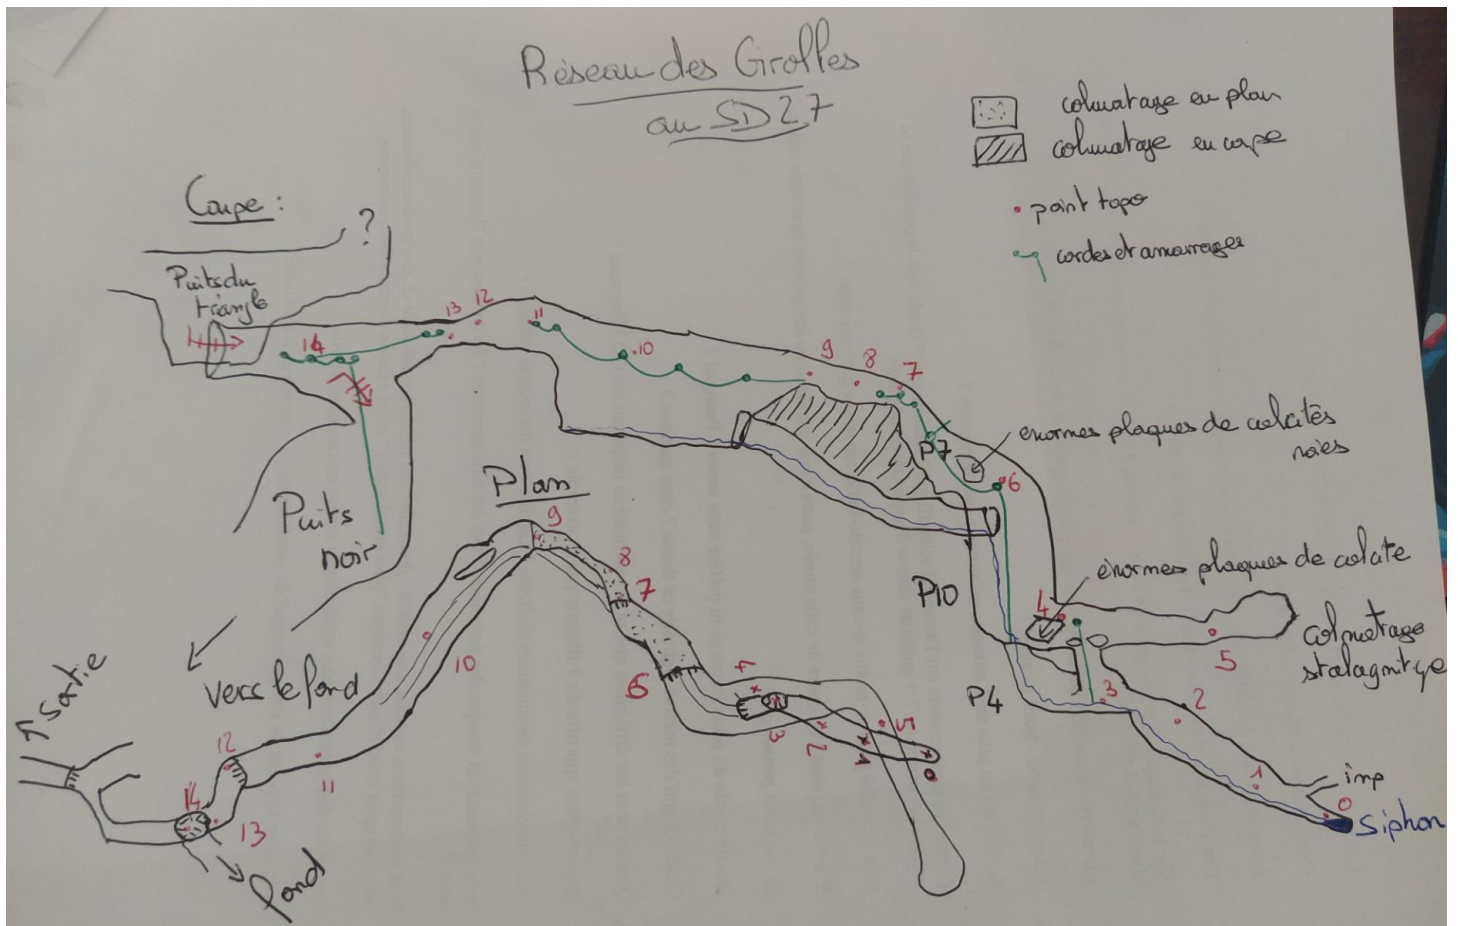 Réseau des Girolles
au SD27
colmatage en plan
colmatage en coupe
point topo
cordes et amarrages
Coupe :
?
Puits du
triangle
14
13
12
11
10
9
8
7
P7
énormes plaques de calcites
noies
6
Puits
noir
P10
énormes plaques de calcite
4
5
colmatage
stalagmitique
P4
3
2
1
imp
0
Siphon
Plan
9
8
7
10
6
4
3
2
1
5
0
vers le fond
Sortie
12
11
14
13
fond